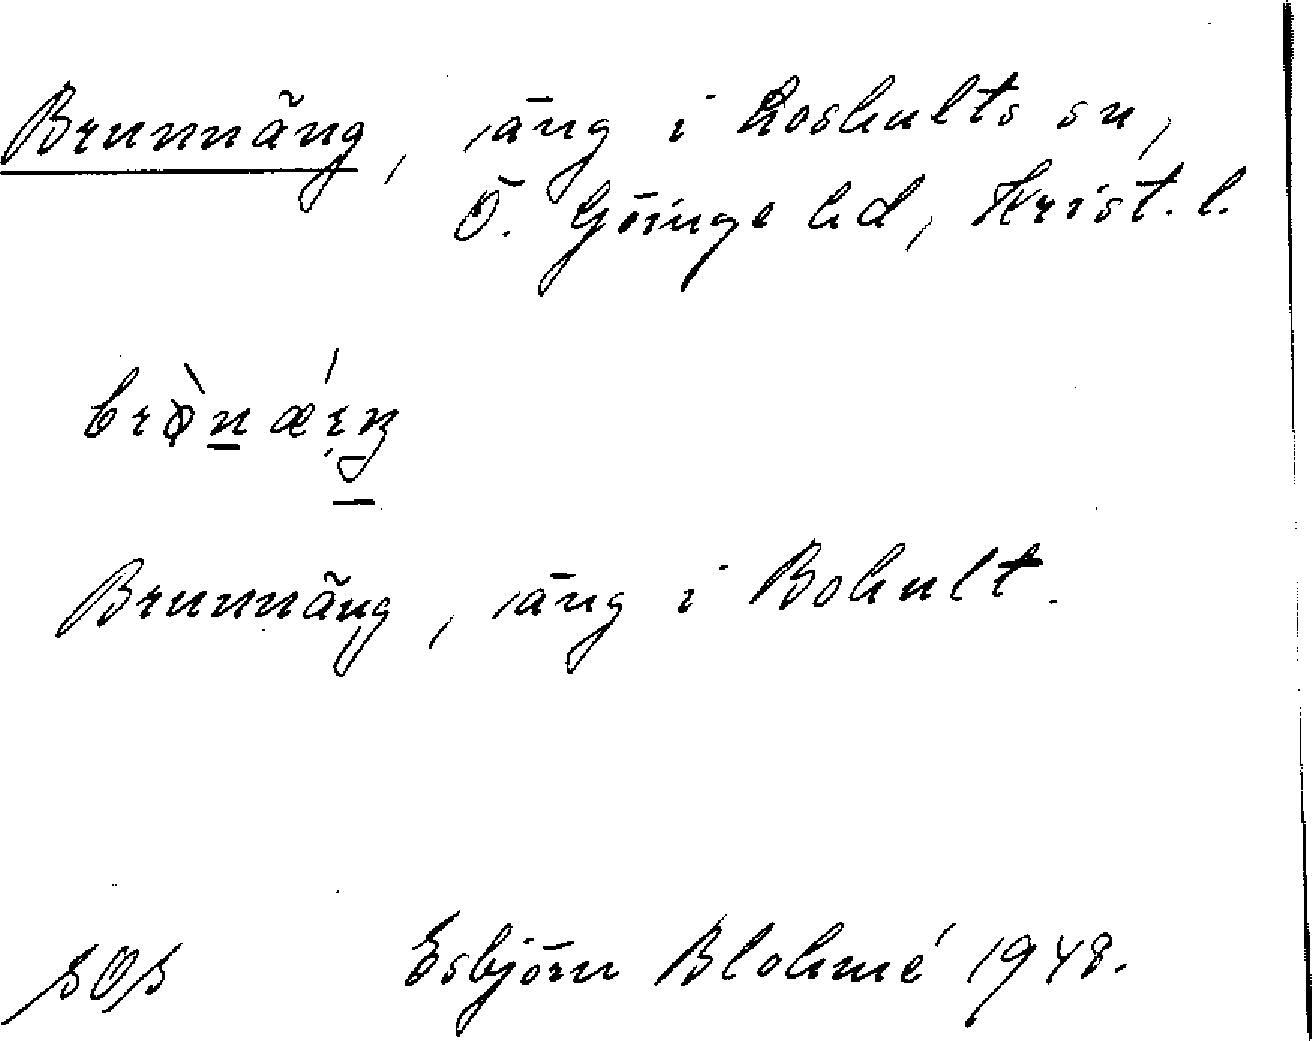 Brunnäng, äng i Loshults sn,
Ö. Göinge hd, Krist. l.
Brunnäng, äng i Bohult.
SOS Esbjörn Blohmé 1948.